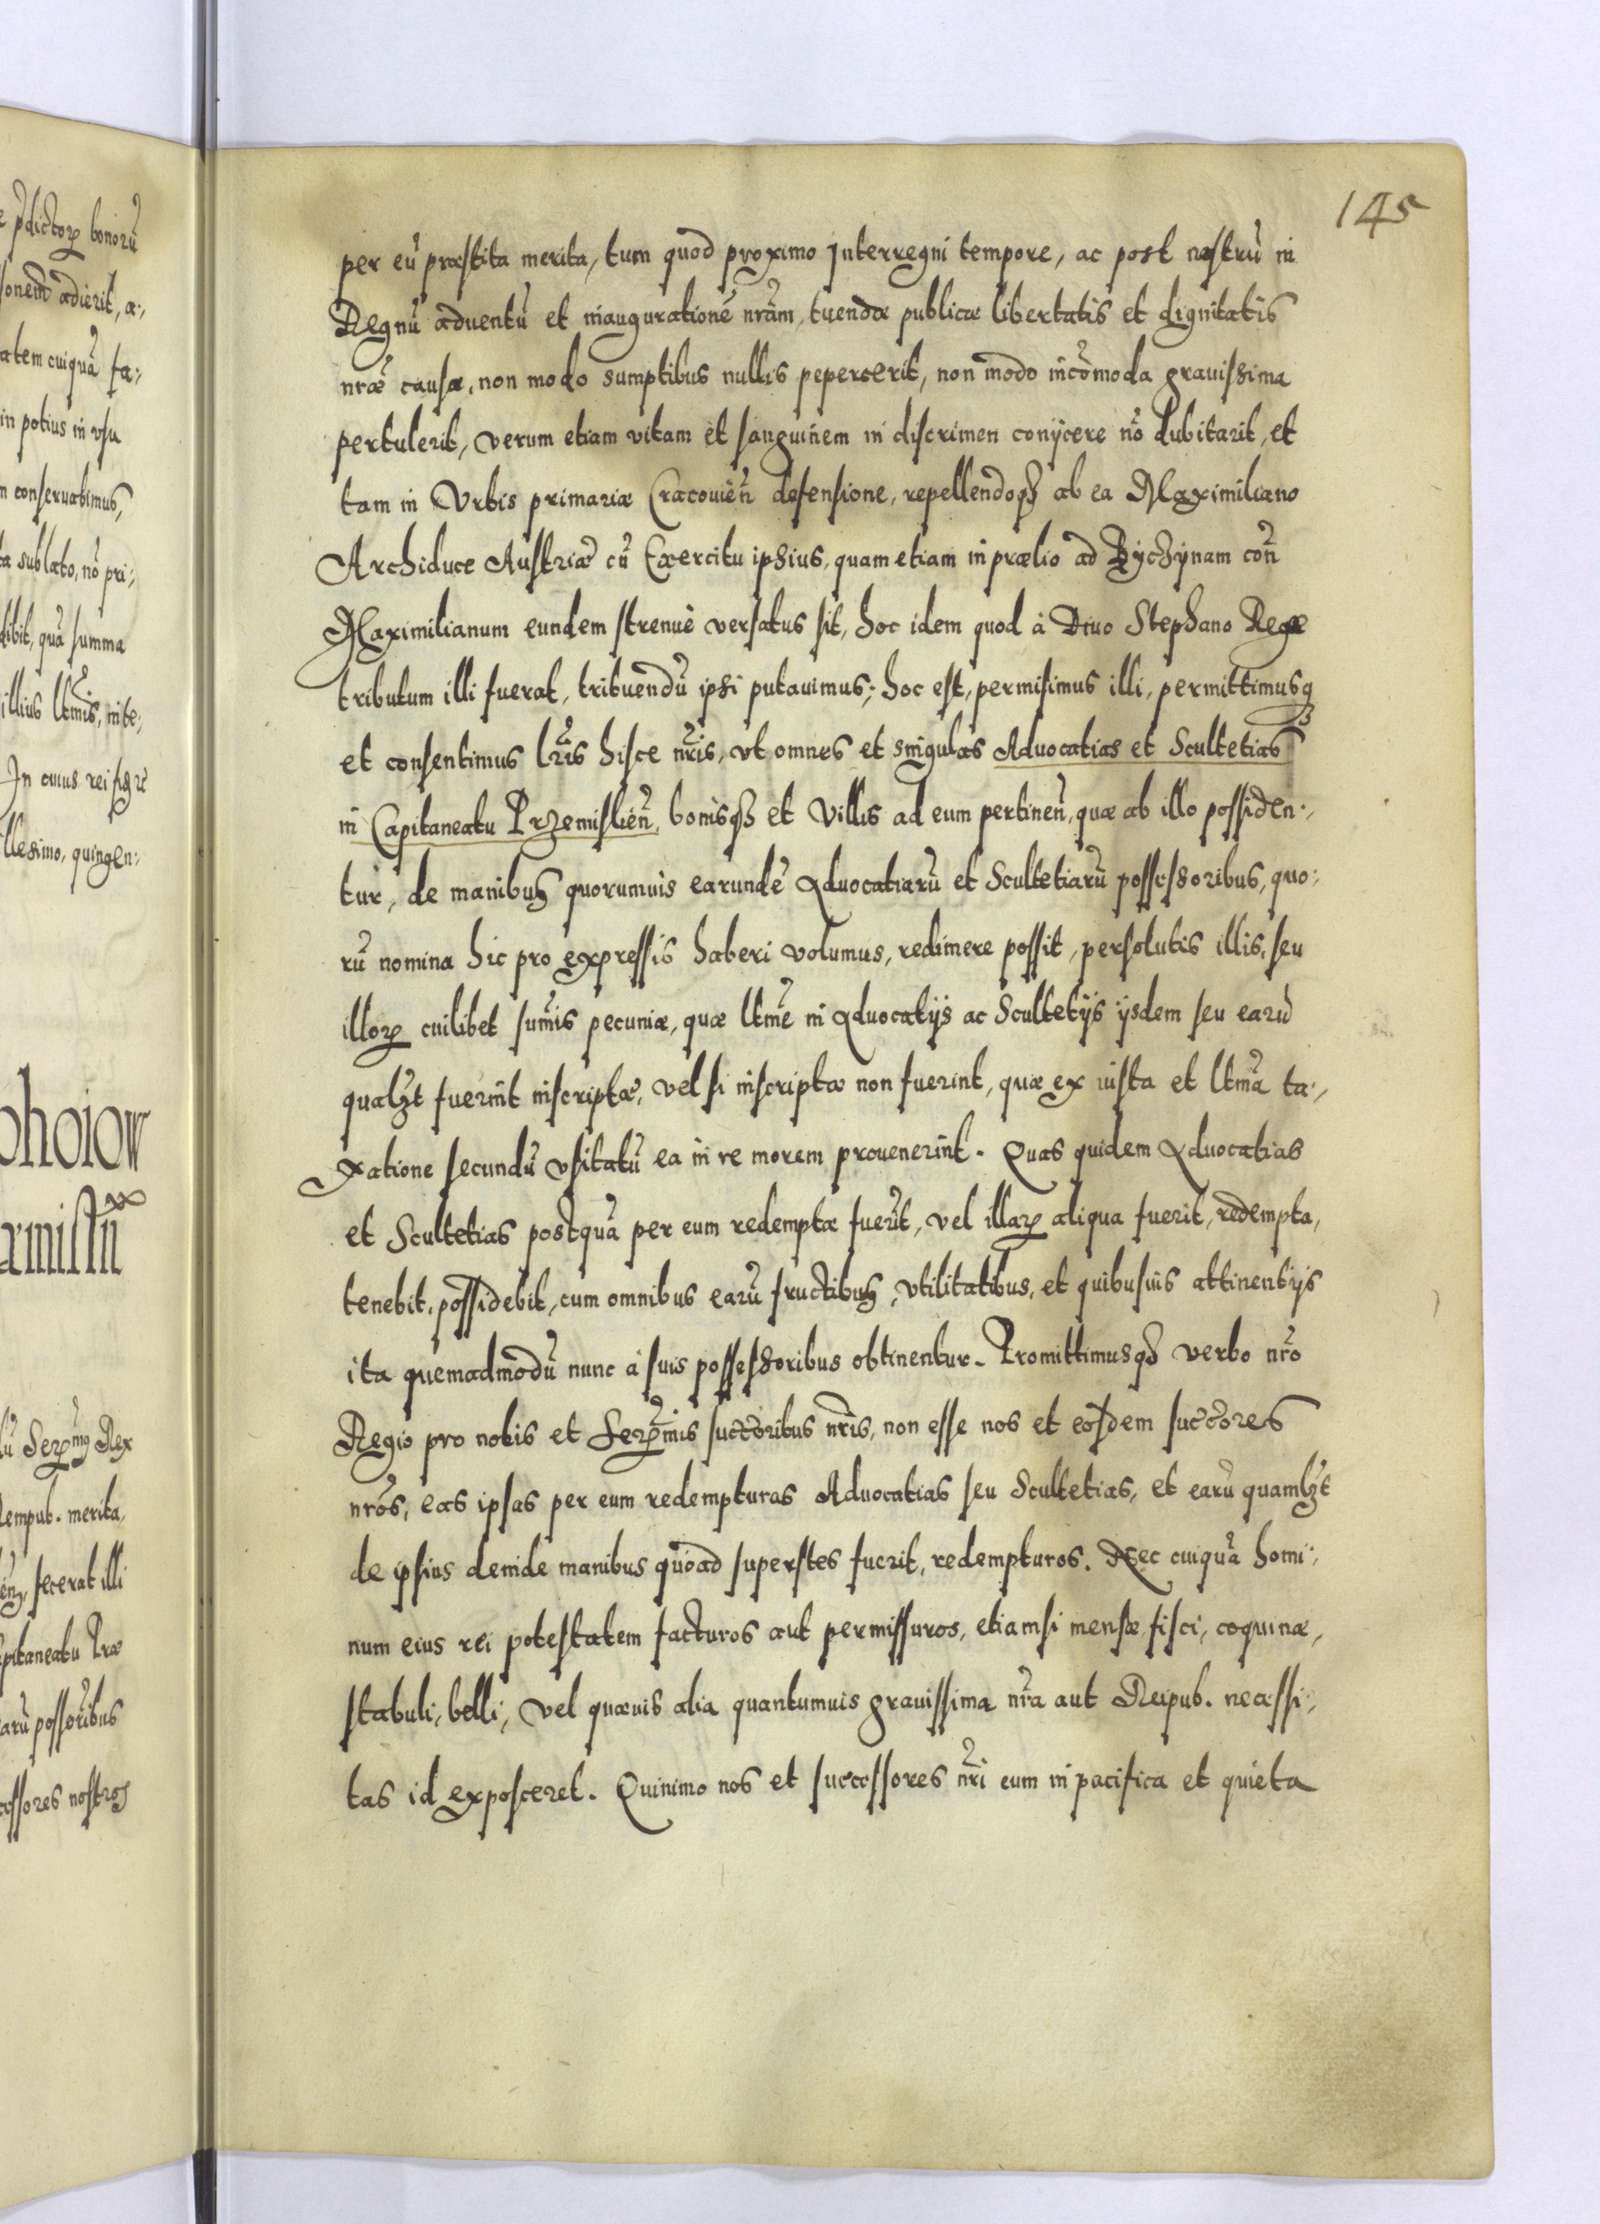 145
per eũ præstita merita, tum quod proximo Interregni tempore, ac post nostrũ in
Regnũ aduentũ et inaugurationẽ nr̃am, tuendæ publicæ libertatis et dignitatis
nr̃æ causæ, non modo sumptibus nullis pepercerit, non modo incõmoda grauissima
pertulerit, verum etiam vitam et sanguinem in discrimen conijcere nõ dubitarit, et
tam in Vrbis primariæ Cracouieñ defensione, repellendoq₃ ab ea Maximiliano
Archiduce Austriæ cũ Exercitu ipsius, quam etiam in prælio ad Byczynam coñ
Maximilianum eundem strenuè versatus sit, hoc idem quod à Diuo Stephano Rege
tributum illi fuerat, tribuendũ ipsi putauimus; hoc est, permisimus illi, permittimusq₃
et consentimus lr̃is hisce nr̃is, vt omnes et singulas Aduocatias et Scultetias
in Capitaneatu Przemislieñ, bonisq₃ et Villis ad eum pertineñ, quæ ab illo possiden:
tur, de manibus quorumuis earundẽ Aduocatiarũ et Scultetiarũ possessoribus, quo:
rũ nomina hic pro expressis haberi volumus, redimere possit, persolutis illis, seu
illoꝝ cuilibet sum̃is pecuniæ, quæ ltm̃e in Aduocatijs ac Scultetijs ijsdem seu earũ
qualꝫt fuerint inscriptæ, vel si inscriptæ non fuerint, quæ ex iusta et ltm̃a ta:
xatione secundũ vsitatũ ea in re morem prouenerint. Quas quidem Aduocatias
et Scultetias postquã per eum redemptæ fuer̃it, vel illaꝝ aliqua fuerit, redempta,
tenebit, possidebit, cum omnibus earũ fructibus, vtilitatibus, et quibusuis attinentijs
ita quemadmodũ nunc à suis possessoribus obtinentur. Promittimusq₃ verbo nr̃o
Regio pro nobis et Serꝝmis succ̃oribus nr̃is, non esse nos et eosdem succ̃ores
nr̃os, eas ipsas per eum redempturas Aduocatias seu Scultetias, et earũ quamlꝫt
de ipsius deinde manibus quoad superstes fuerit, redempturos. Nec cuiquã homi:
num eius rei potestatem facturos aut permissuros, etiamsi mensæ fisci, coquinæ,
stabuli, belli, vel quæuis alia quantumuis grauissima nr̃a aut Reipub. necessi:
tas id exposceret. Quinimo nos et successores nr̃i eum in pacifica et quieta